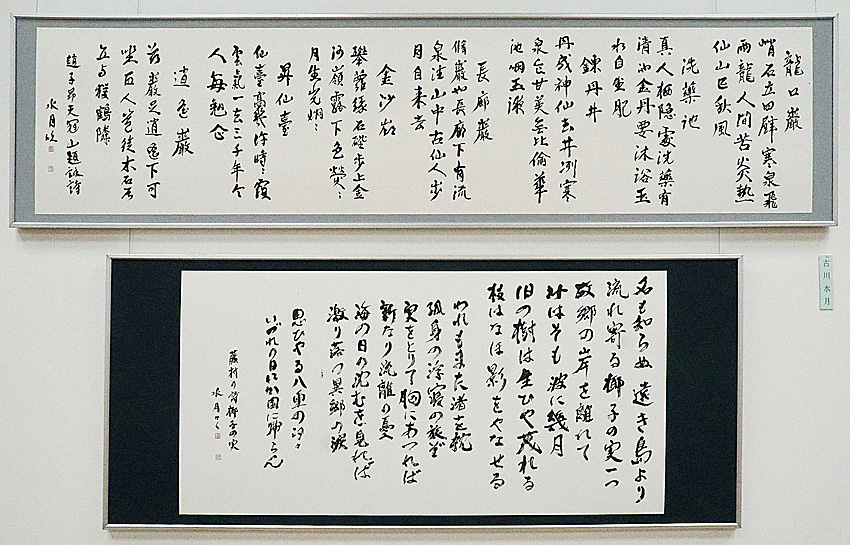 龍口巖
峭石立四壁寒泉飛
兩龍人間苦炎熱
仙山已秋風
洗藥池
真人栖隱處洗藥有
清池金丹要沐浴玉
水自生肥
鍊丹井
丹成神仙去井冽寒
泉食甘美無比倫華
池咽玉液
長廊巖
脩巖如長廊下有流
泉注山中古仙人步
月自來去
金沙嶺
攀蘿緣石磴步上金
沙嶺露下色熒〻
月生光炯〻
昇仙臺
仙臺高幾許時〻覆
雲氣一去三千年令
人每翹企
逍遙巖
茲巖足逍遙下可
坐百人豈徒木石居
与猨鶴隣
趙子昂天冠山題詠詩
水月臨
名も知らぬ遠き島より
流れ寄る椰子の実一つ
故郷の岸を離れて
汝はそも波に幾月
旧の樹は生ひや茂れる
枝はなほ影をやなせる
われもまた渚を枕
孤身の浮寝の旅ぞ
実をとりて胸にあつれば
新なり流離の憂
海の日の沈むを見れば
激り落つ異郷の涙
思ひやる八重の汐々
いづれの日にか国に帰らん
藤村の詩椰子の実
水月かく
古川水月